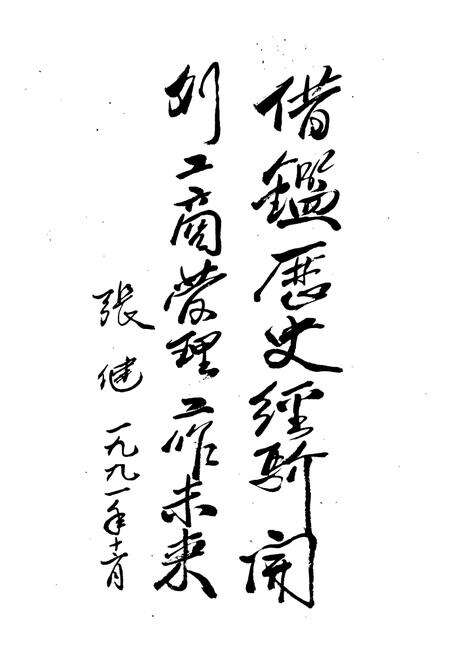 借鑑歷史經驗開
创工商管理工作未來
張健
一九九一年十月